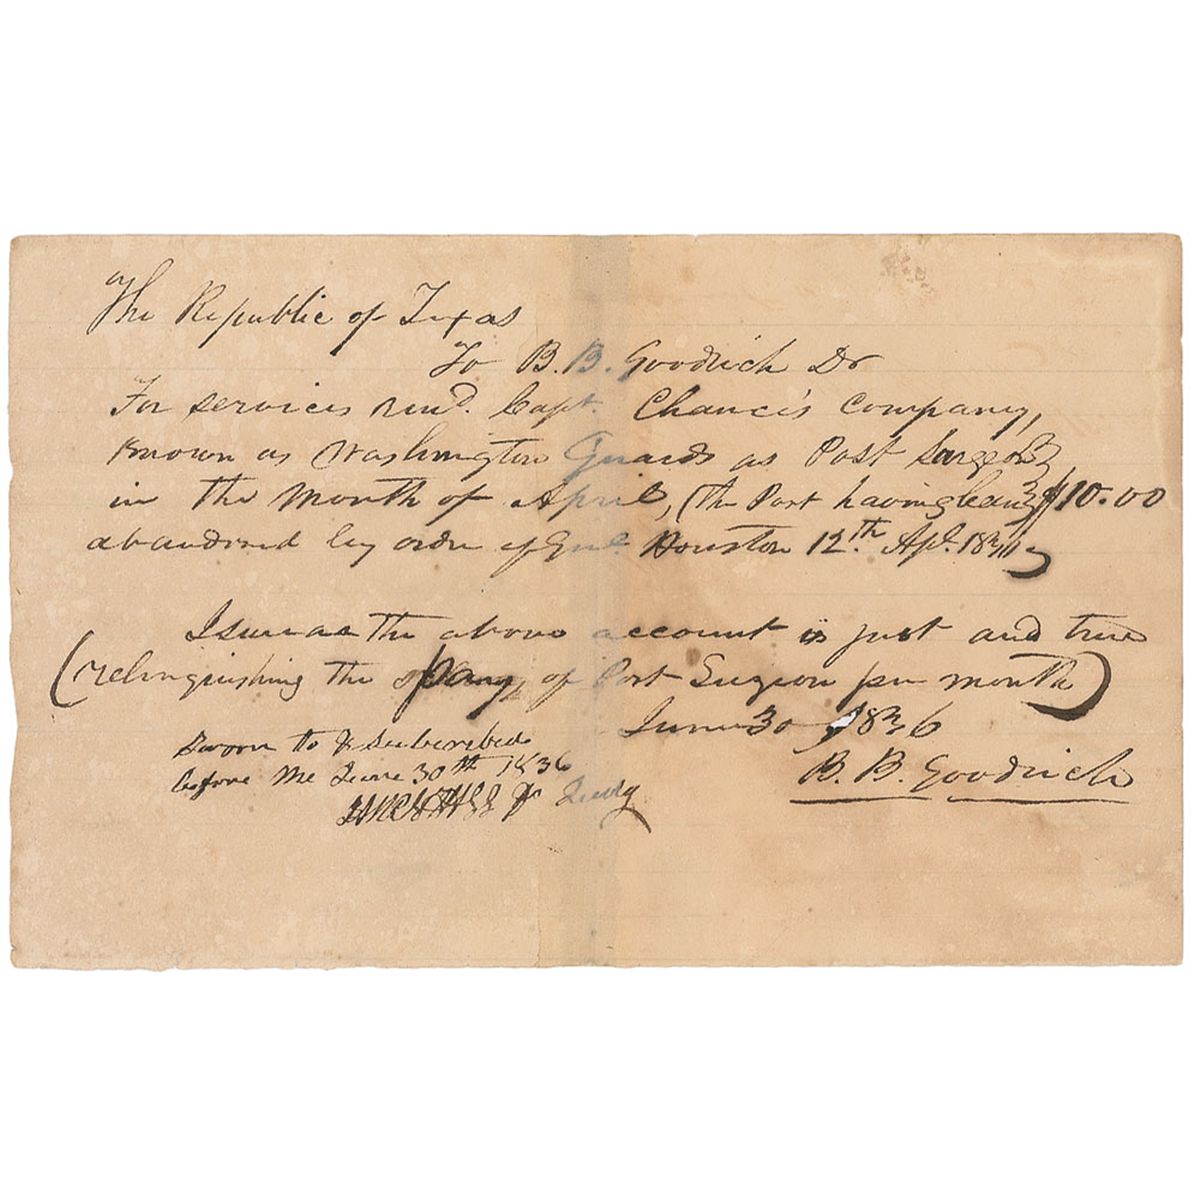 The Republic of Texas
To B. B. Goodrich Dr
For services rend. Capt. Chance's Company,
known as Washington Guards as Post Surgeon
in the Month of April, (the Post having been $10.00
abandoned by order of Genl. Houston 12th Apl. 1836
I swear the above account is just and true
(relinquishing the pay of Post Surgeon per month)
June 30 1836
Sworn to & subscribed
before me June 30th 1836
B. B. Goodrich
Judg